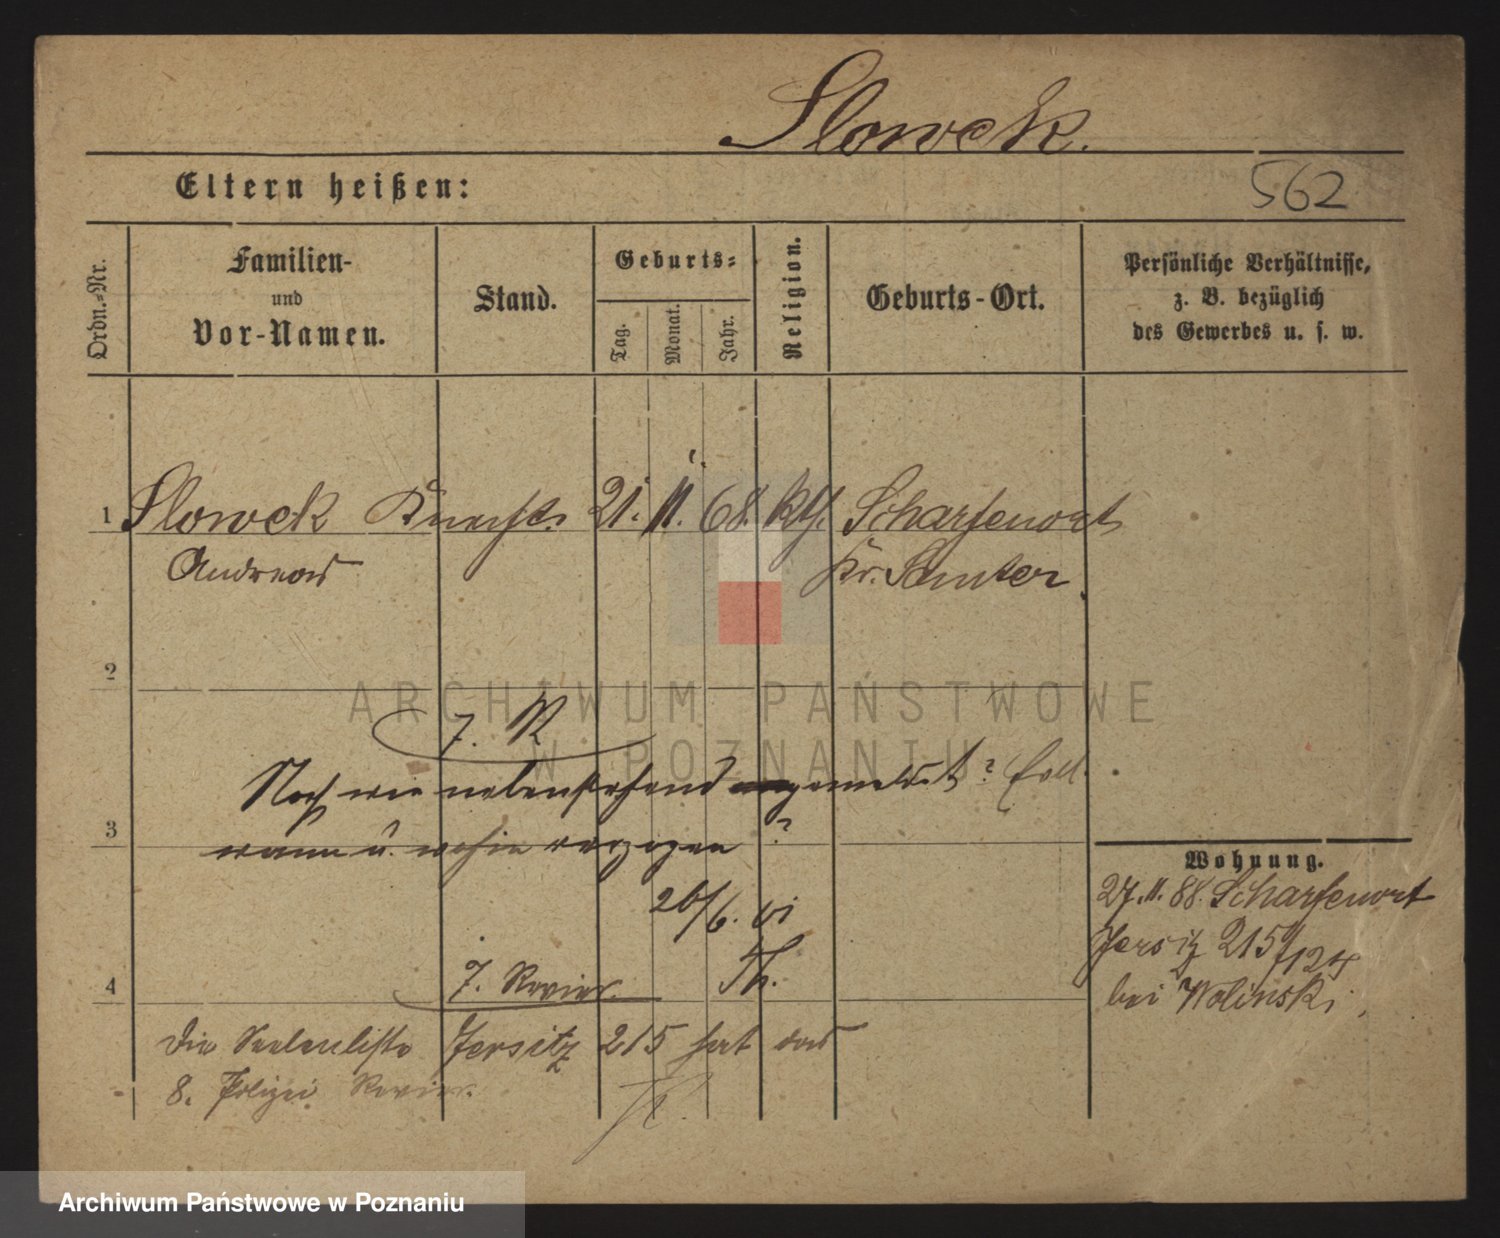 Slowek.
Eltern heißen:
562
Ordn.-Nr.
Familien-
und
Vor-Namen.
Stand.
Geburts-
Tag.
Monat.
Jahr.
Religion.
Geburts-Ort.
Persönliche Verhältnisse,
z. B. bezüglich
des Gewerbes u. s. w.
1 Slowek Knecht 21. 11. 68. kth. Scharfenort
Andreas Kr. Samter
2
ARCHIWUM PAŃSTWOWE
W POZNANIU
7. R
Noch wie nebenstehend gemeldet? Evtl.
3
wann u. wohin verzogen?
26/6.
Th.
4
7. Revier.
Die Seelenliste Jersitz 215 hat das
8. Polizei Revier.
Wohnung.
27.11.88. Scharfenort
Jersitz 215
bei Wolinski
Archiwum Państwowe w Poznaniu